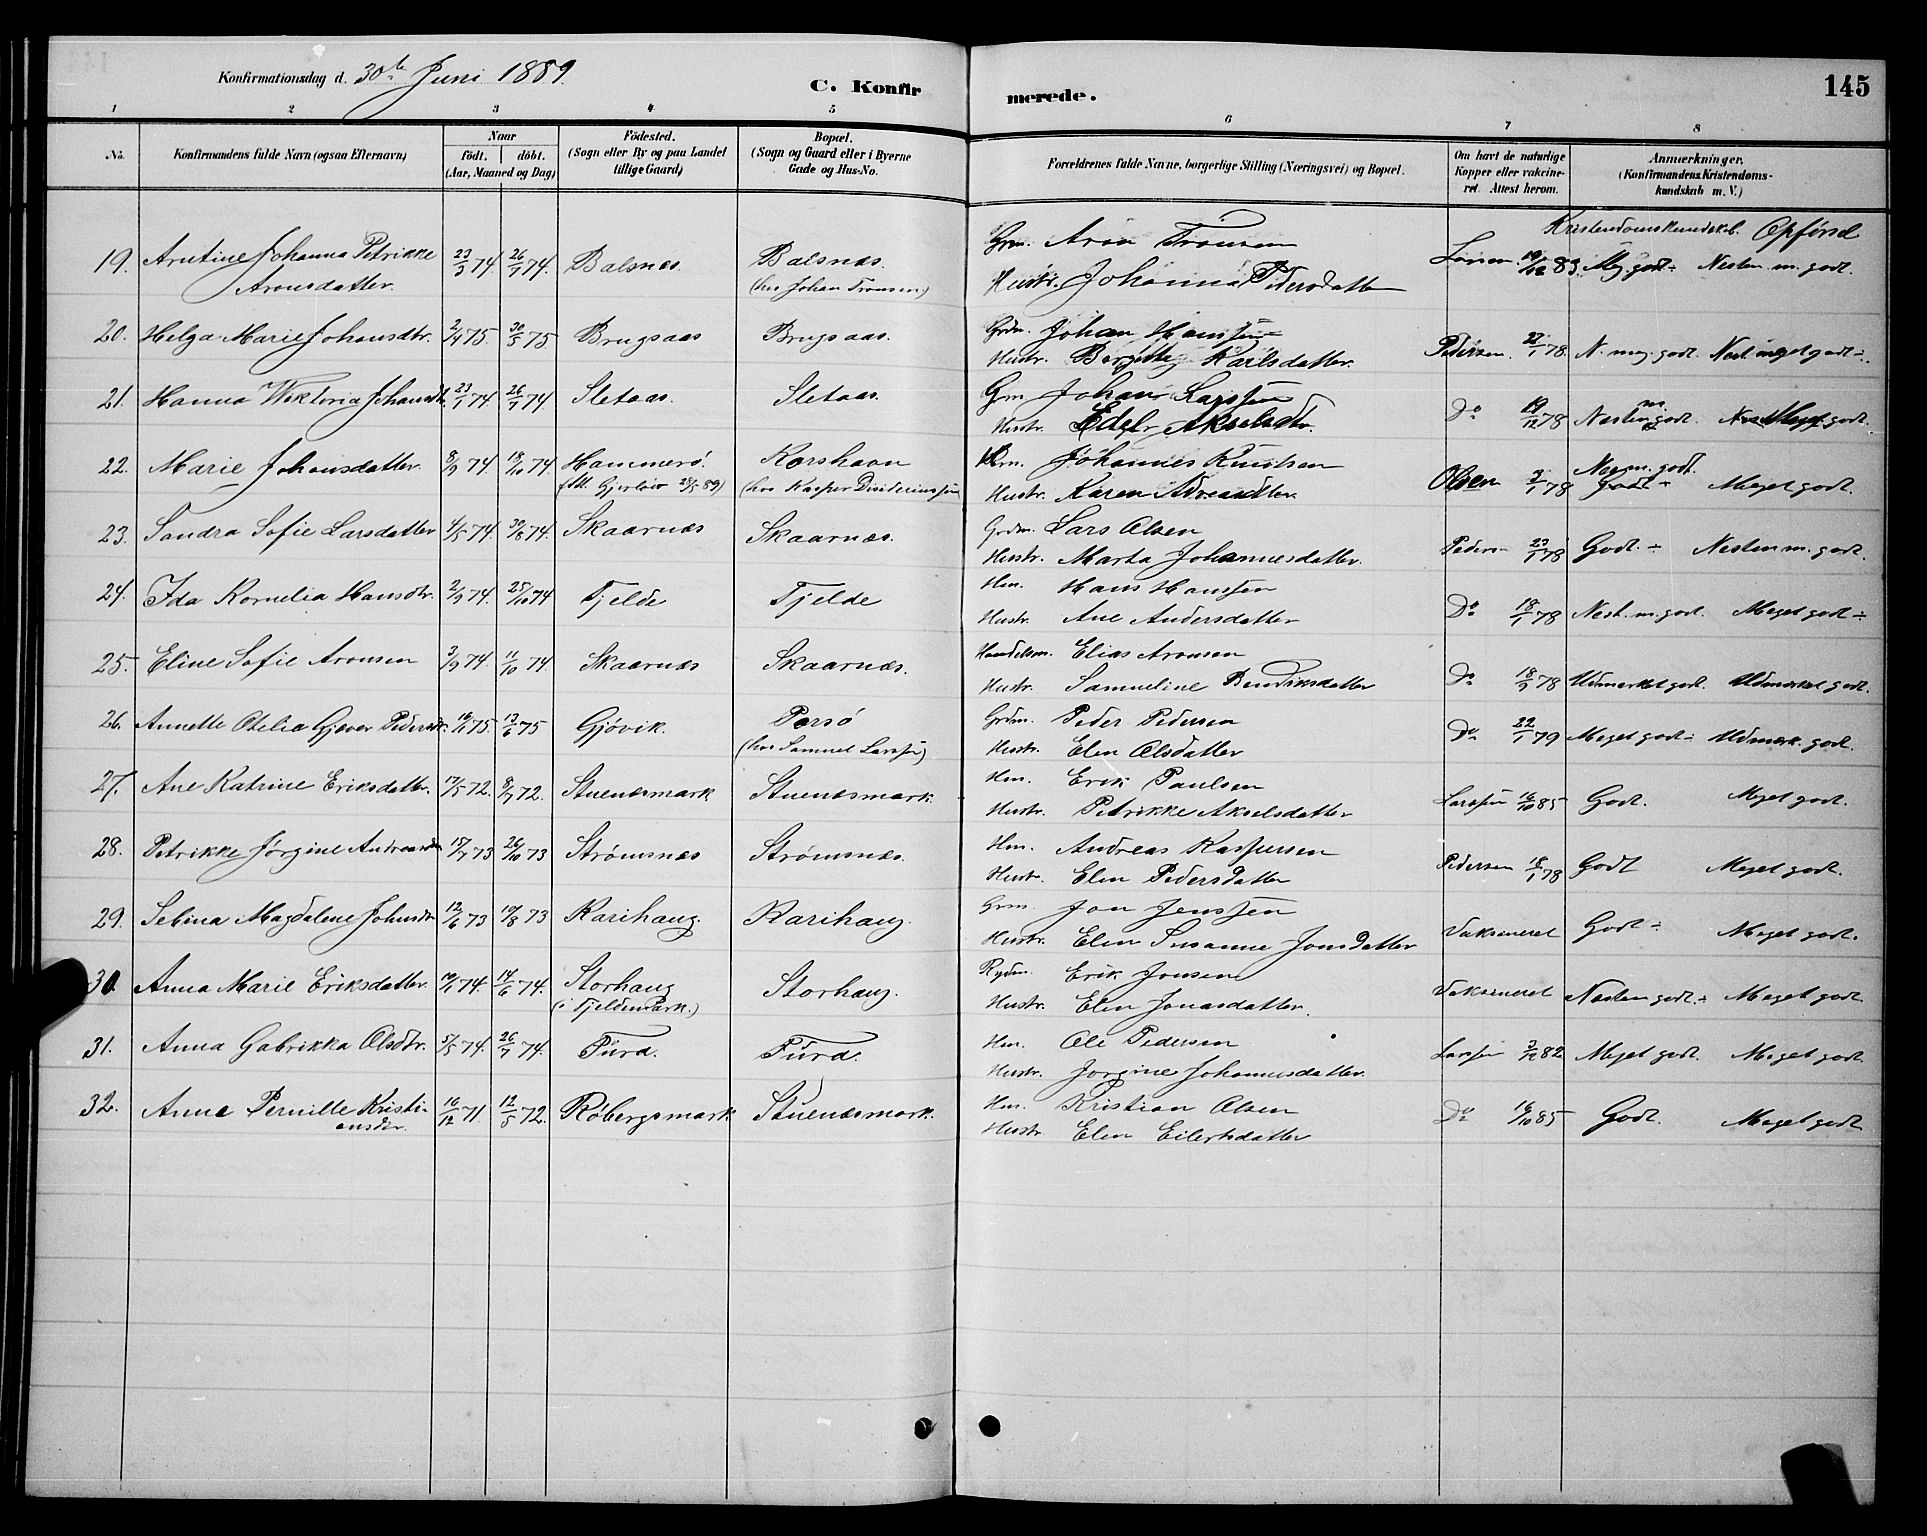 Konfirmationsdag d. 30te Juni 1889.
C. Konfirmerede.
145
1 2 3 4 5 6 7 8
No.
Konfirmandens fulde Navn (ogsaa Efternavn)
Naar
födt. döbt.
(Aar, Maaned og Dag)
Födested.
(Sogn eller By og paa Landet
tillige Gaard)
Bopæl.
(Sogn og Gaard eller i Byerne
Gade og Hus-No.
Forældrenes fulde Navne, borgerlige Stilling (Næringsvei) og Bopæl.
Om havt de naturlige
Kopper eller vakcine-
ret. Attest herom.
Anmærkninger.
(Konfirmandens Kristendoms-
kundskab m. V.)
Kristendomskundskb. Opførsel
19. Arntine Johanna Petrikke 23/3 74. 26/7 74. Balsnæs. Balsnæs. Grm. Aron Tronsen
Aronsdatter. (hos Johan Tronsen) Hustr. Johanna Pedersdatter 19/12 83. Meg. godt ÷ Nesten m. godt.
20. Helga Marie Johansdtr. 2/4 75. 30/5 75 Brugsaas Brugsaas. Grdm. Johan Hanssen
Hustr. Bergitte Karlsdatter. Pedersen. 22/1 78. N. meg. godt. Nest. meget godt ÷.
21. Hanna Viktoria Johansdtr. 23/1 74. 26/7 74 Sletaas. Sletaas. Grm Johan Larssen
Hustr. Edel Akselsdtr. Do 19/12 78 Nesten m. godt. Meget godt.
22. Marie Johansdatter. 8/9 74. 18/10 74. Hammerö. Korshavn Johannes Knutsen
(hos Kasper Desideriussen Hustr. Karen Adreasdtter. Olsen 2/1 78 Nes. m. godt. Godt ÷ Meget godt.
23. Sandra Sofie Larsdatter 4/5 74. 30/8 74. Skaarnæs Skaarnæs. Grdm. Lars Olsen
Hustr. Marta Johannesdatter. Peders- 23/1 78 Godt. ÷ Nesten m. godt.
24. Ida Kornelia Hansdtr. 2/9 74. 25/10 74 Tjelde Tjelde Hm. Hans Hanssen
Hustr. Ane Andersdatter Do 18/1 78 Nest. m. godt. Meget godt ÷
25. Eline Sofie Aronsen 3/9 74. 11/10 74 Skaarnæs Skaarnæs. Handelsm. Elias Aronsen
Hustr. Samueline Bendiksdatter Do 18/9 78 Udmærket godt. Udmærket godt.
26. Annette Otelia Gjæver Pedersdtr. 75. 13/6 75 Gjøvik. Porsö Grdm. Peder Pedersen
(hos Samuel Larssen) Hustr. Elen Olsdatter Do 22/1 79 Meget godt ÷ Udmærk. godt.
27. Ane Katrine Eriksdatter. 17/5 72. 8/7 72. Stuenæsmark Stuenæsmark. Hm. Erik Paulsen
Hustr. Petrikke Akselsdatter Larssen 16/10 85 Godt. Meget godt.
28. Petrikke Jørgine Andreasdtr 15/7 73 26/10 73 Strømsnæs Strømsnæs. Hm. Andreas Kaspersen
Hustr. Elen Pedersdatter Pedersen 18/1 78 Godt Meget godt.
29. Sebina Magdalene Johnsdtr 12/6 73 17/8 73 Karihaug. Karihaug. Grm. Jon Jenssen
Hustr. Elen Susanne Jonsdatter Vaksineret Godt ÷ Meget godt.
30. Anna Marie Eriksdatter. 74. 14/6 74. Storhaug Storhaug. Rydm. Erik Jonsen
(i Tjeldenmark.) Hustr. Elen Jonasdatter. Vaksineret Nesten godt. ÷ Meget godt
31. Anna Gabrikka Olsdtr. 5/5 74. 26/7 74. Furd. Furd. Hm. Ole Pedersen
Hustr. Jorgine Johannesdatter. Larssen 3/12 82 Meget godt. Meget godt
32. Anna Pernille Kristi- 16/12 71. 12/5 72. Röbergsmark Stuenæsmark. Hm. Kristian Olsen
ansdtr. Hustr Elen Eilertsdatter Do 16/10 85 Godt. Meget godt